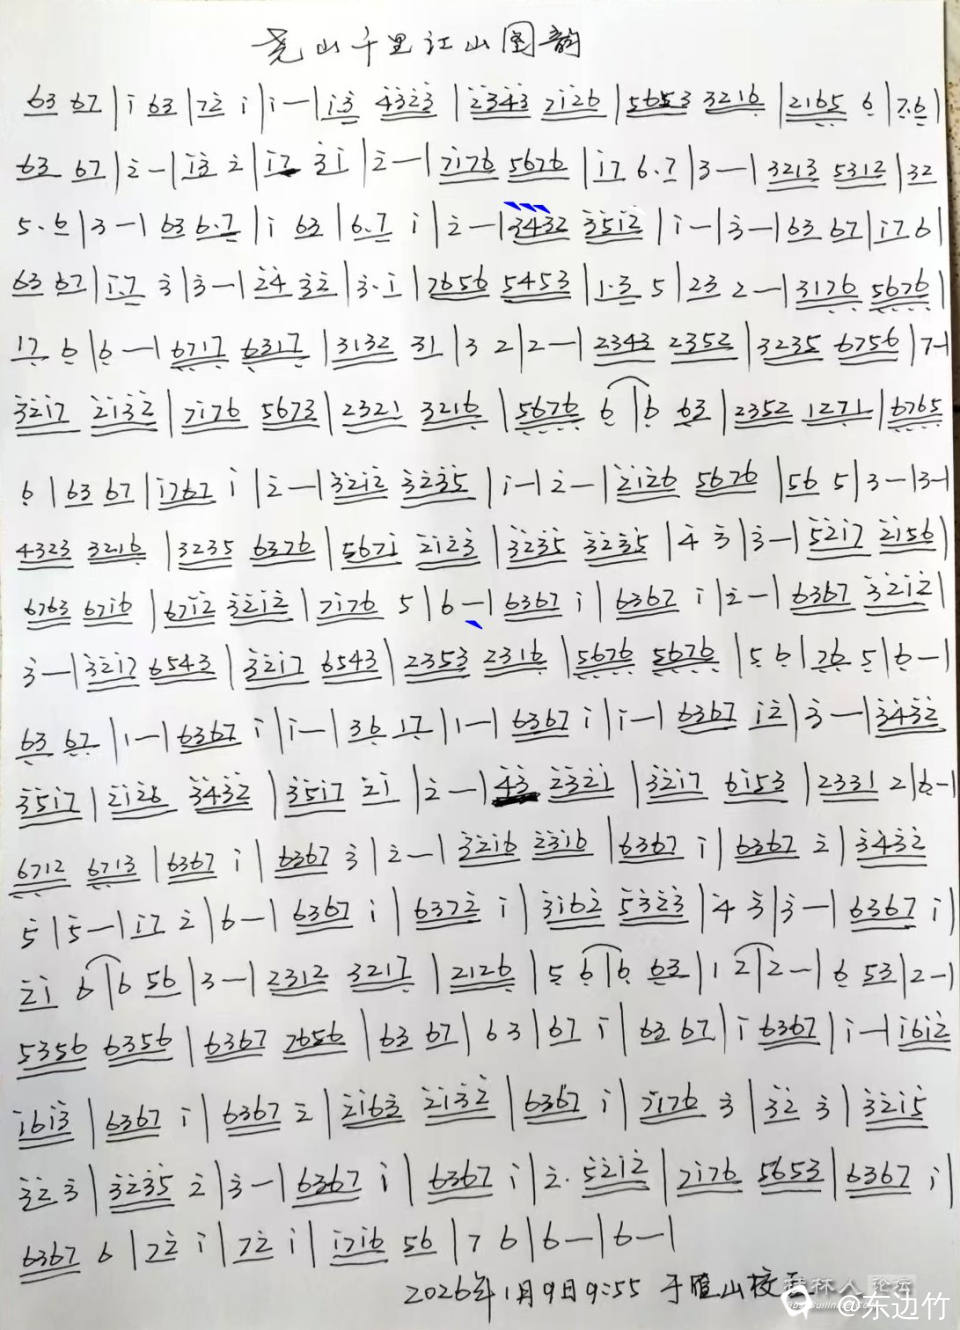 尧山千里江山图韵
63 67 | i 63 | 72̇ i | i — | i3̇ 4̇3̇2̇3̇ | 2̇3̇4̇3̇ 7i2̇6 | 5653 3216 | 2165 6 | 7.6 |
63 67 | 2̇ — | i3̇ 2̇ | i7 3̇i | 2̇ — | 7i76 5676 | i7 6.7 | 3 — | 3213 5312 | 32
5.6 | 3 — | 63 6.7 | i 63 | 6.7 i | 2̇ — | 3̇4̇3̇2̇ 3̇5i2̇ | i — | 3̇ — | 63 67 | i7 6 |
63 67 | i.7 3̇ | 3̇ — | 2̇4̇ 3̇2̇ | 3̇.i | 7656 5453 | 1.3 5 | 23 2 — | 3176 5676 |
17 6 | 6 — | 6717 6317 | 3132 31 | 3 2 | 2 — | 2343 2352 | 3235 6756 | 7 — |
3̇2̇i7 2̇i3̇2̇ | 7i76 5673 | 2321 3216 | 5676 6 | 6 63 | 2352 1271 | 6765
6 | 63 67 | i767 i | 2̇ — | 3̇2̇i2̇ 3̇2̇3̇5̇ | i — | 2̇ — | 2̇i26 5676 | 56 5 | 3 — | 3 — |
4323 3216 | 3235 6376 | 567i 2̇i2̇3̇ | 3̇2̇3̇5̇ 3̇2̇3̇5̇ | 4̇ 3̇ | 3̇ — | 5̇2̇i7 2̇i56 |
6763 67i6 | 67i2̇ 3̇2̇i2̇ | 7i76 5 | 6 — | 6367 i | 6367 i | 2̇ — | 6367 3̇2̇i2̇ |
3̇ — | 3̇2̇i7 6543 | 3̇2̇i7 6543 | 2353 2316 | 5676 5676 | 5 6 | 76 5 | 6 — |
63 67 | 1 — | 6367 i | i — | 36 17 | 1 — | 6367 i | i — | 6367 i2̇ | 3̇ — | 3̇4̇3̇2̇
3̇5i7 | 2̇i2̇6 3̇4̇3̇2̇ | 3̇5i7 2̇i | 2̇ — | 4̇3̇ 2̇3̇2̇i | 3̇2̇i7 6i53 | 2331 2 | 6 — |
6712 6713 | 6367 i | 6367 3̇ | 2̇ — | 3̇2̇i6 2̇3̇i6 | 6367 i | 6367 2̇ | 3̇4̇3̇2̇
5̇ | 5̇ — | i7 2̇ | 6 — | 6367 i | 6372̇ i | 3̇i62̇ 5̇3̇2̇3̇ | 4̇ 3̇ | 3̇ — | 6367 i |
2̇i 6 | 6 56 | 3 — | 2312 3217 | 2126 | 5 6 | 6 63 | 1 2 | 2 — | 6 53 | 2 — |
5356 6356 | 6367 7656 | 63 67 | 6 3 | 67 i | 63 67 | i 6367 | i — | i6i2̇
i6i3̇ | 6367 i | 6367 2̇ | 2̇i63̇ 2̇i3̇2̇ | 6367 i | 7i76 3̇ | 3̇2̇ 3̇ | 3̇2̇i5
3̇2̇ 3̇ | 3̇2̇3̇5̇ 2̇ | 3̇ — | 6367 i | 6367 i | 2̇. 5̇2̇i2̇ | 7i76 5653 | 6367 i |
6367 6 | 72̇ i | 72̇ i | i7i6 56 | 7 6 | 6 — | 6 — |
2026年1月9日9:55 于尧山校
桂林人论坛
@东边竹